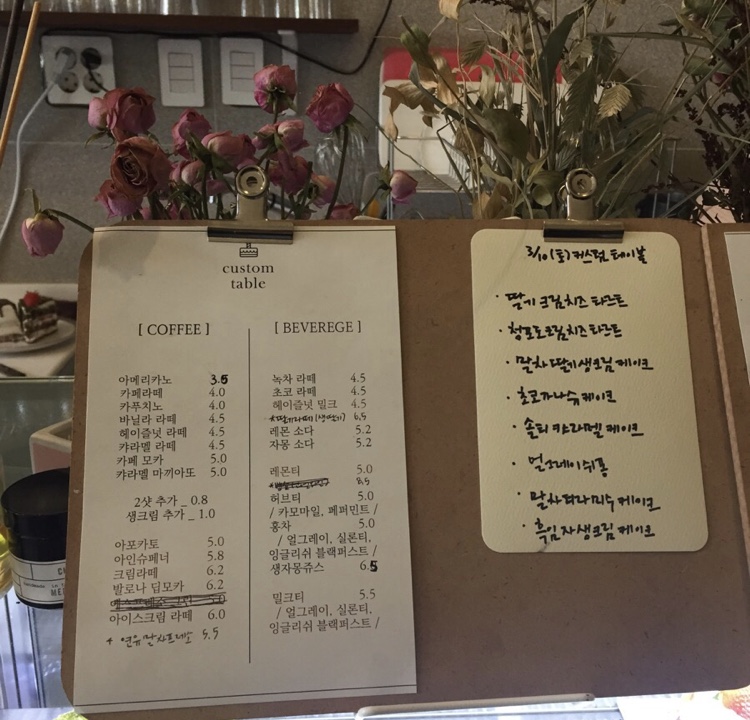 custom
table
[ COFFEE ]
아메리카노 3.5
카페라떼 4.0
카푸치노 4.0
바닐라 라떼 4.5
헤이즐넛 라떼 4.5
캬라멜 라떼 4.5
카페 모카 5.0
캬라멜 마끼아또 5.0
2샷 추가 _ 0.8
생크림 추가 _ 1.0
아포카토 5.0
아인슈페너 5.8
크림라떼 6.2
발로나 딥모카 6.2
아이스크림 라떼 6.0
+ 연유말차프레도 5.5
[ BEVEREGE ]
녹차 라떼 4.5
초코 라떼 4.5
헤이즐넛 밀크 4.5
*딸기라떼(생딸기) 6.5
레몬 소다 5.2
자몽 소다 5.2
레몬티 5.0
허브티 5.0
/ 카모마일, 페퍼민트 /
홍차 5.0
/ 얼그레이, 실론티,
잉글리쉬 블랙퍼스트 /
생자몽쥬스 6.5
밀크티 5.5
/ 얼그레이, 실론티,
잉글리쉬 블랙퍼스트 /
3/10(토) 커스텀 테이블
· 딸기 크림치즈 타르트
· 청포도크림치즈 타르트
· 말차딸기생크림 케이크
· 초코가나슈 케이크
· 솔티 캬라멜 케이크
· 얼그레이쉬퐁
· 말차티라미수 케이크
· 흑임자생크림 케이크